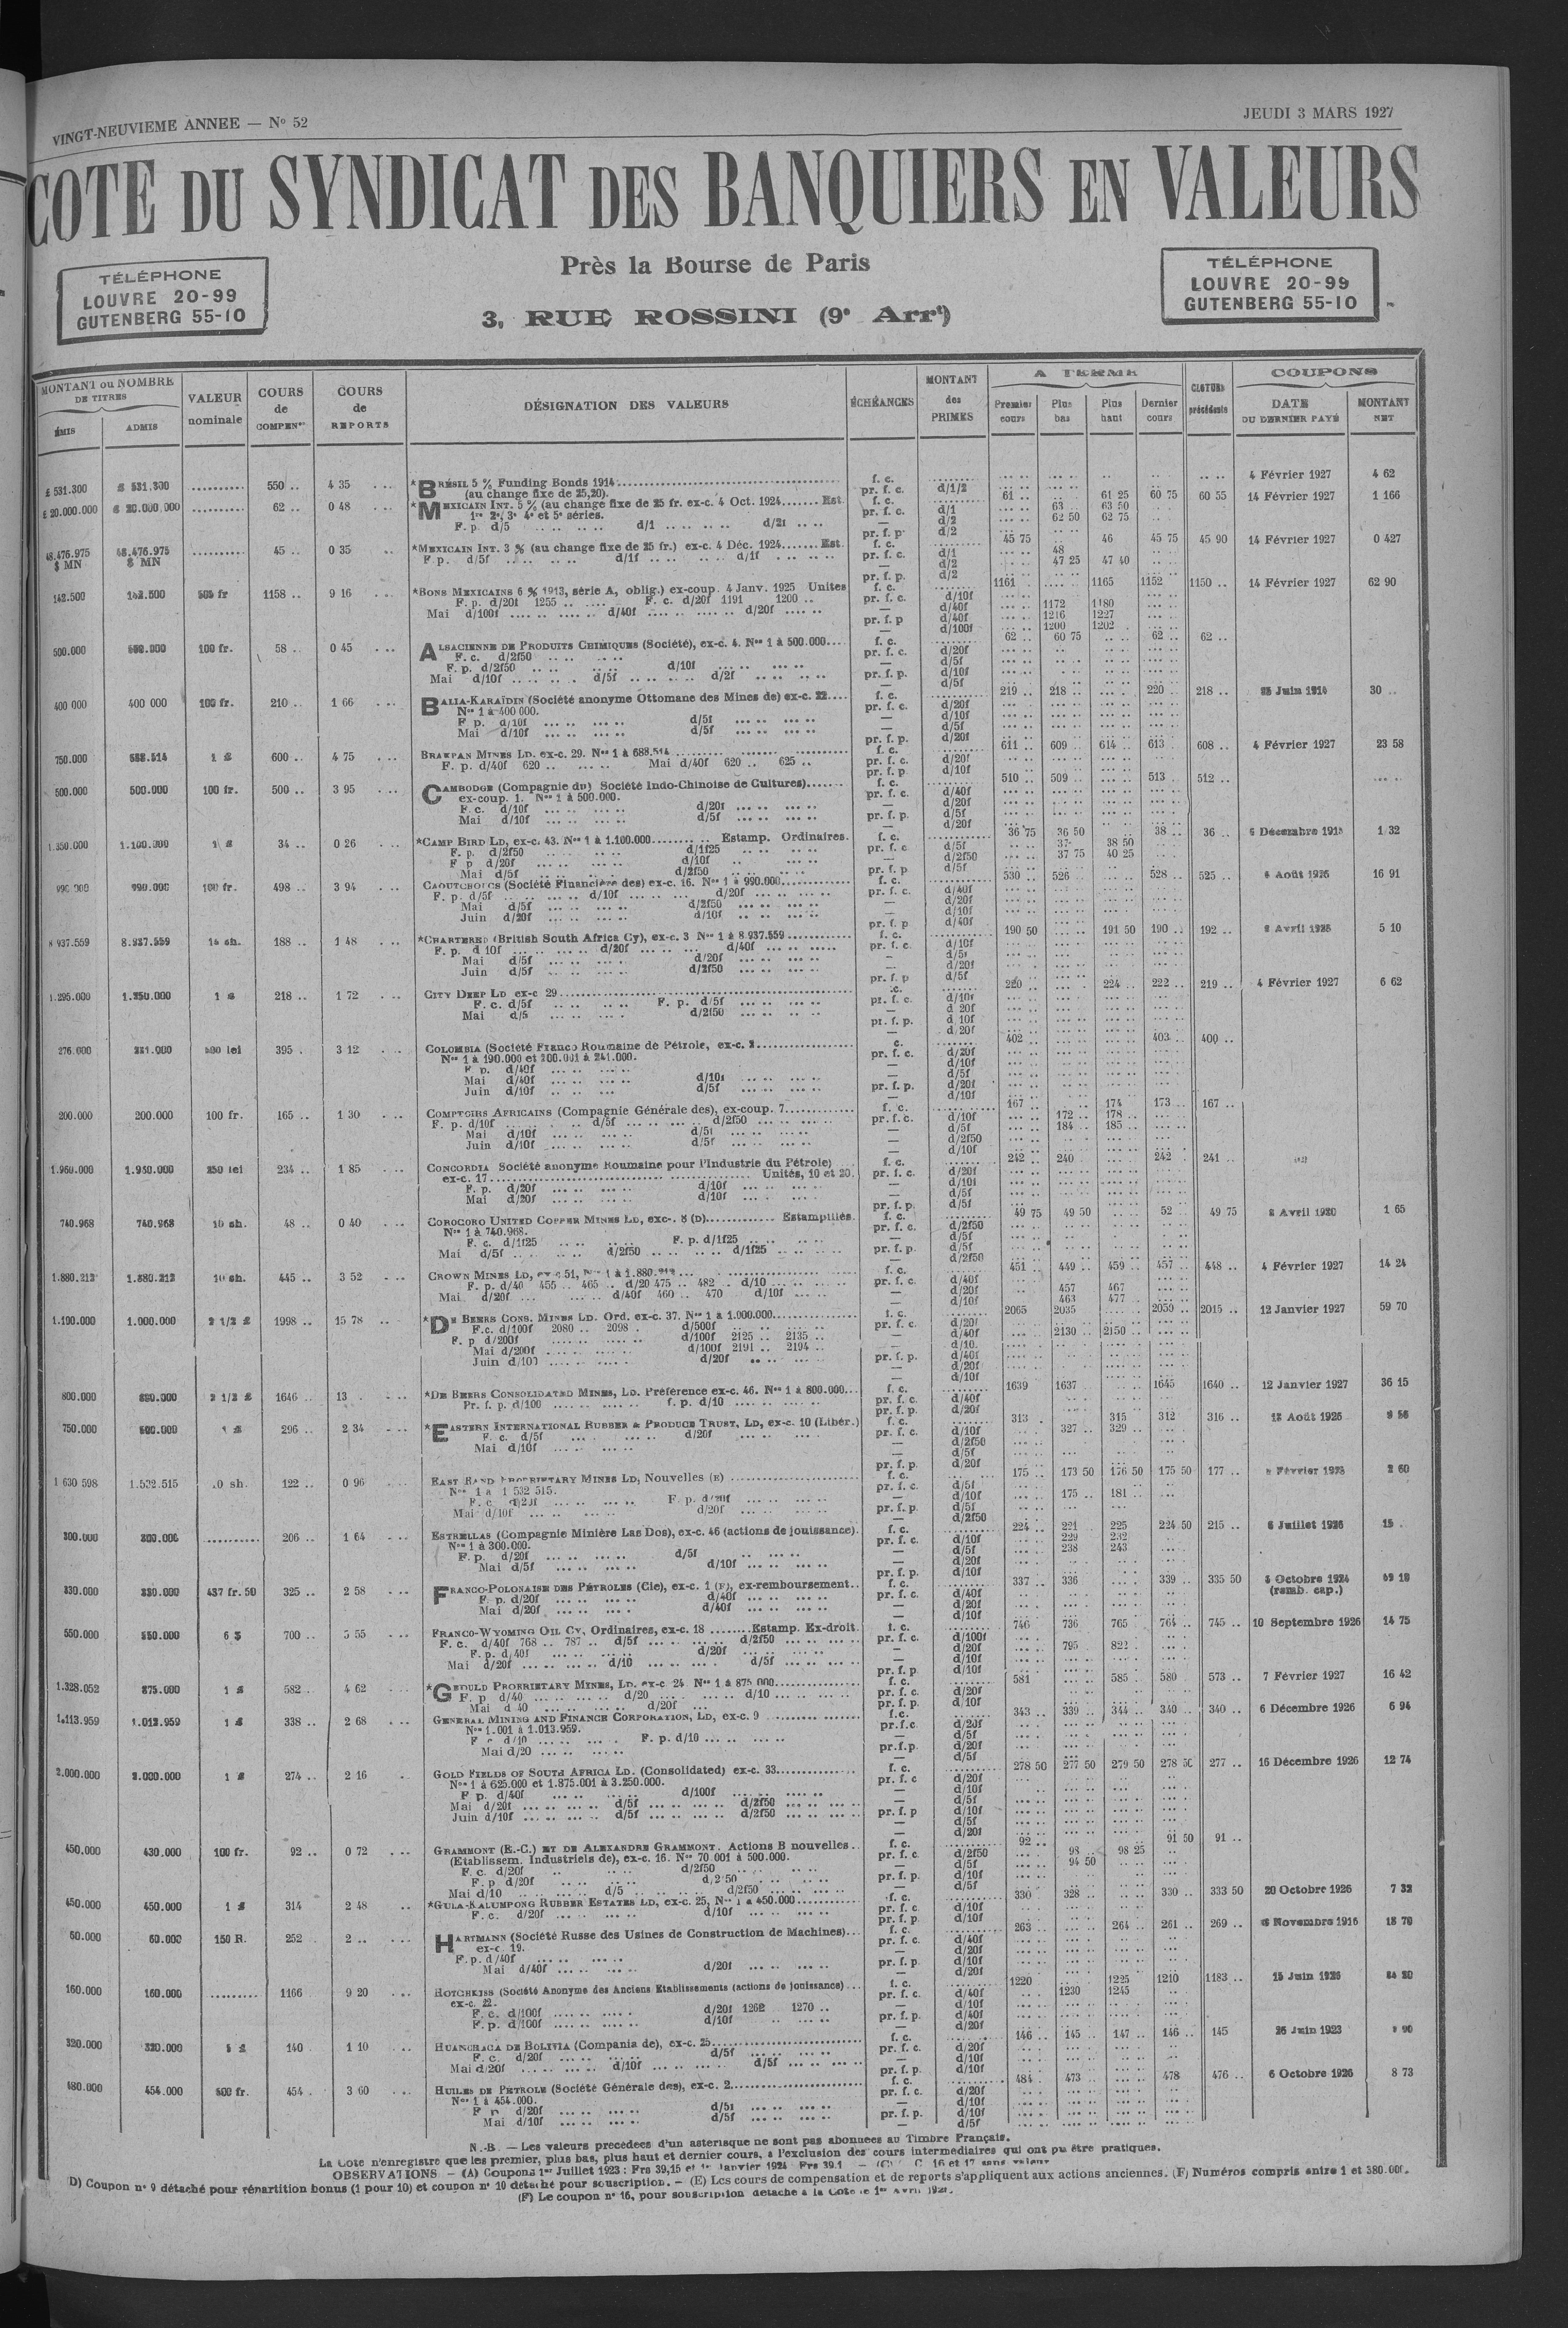 VINGT-NEUVIEME ANNEE — N° 52
JEUDI 3 MARS 1927
COTE DU SYNDICAT DES BANQUIERS EN VALEURS
Près la Bourse de Paris
3, RUE ROSSINI (9e Arrt)
TÉLÉPHONE
LOUVRE 20-99
GUTENBERG 55-10
TÉLÉPHONE
LOUVRE 20-99
GUTENBERG 55-10
MONTANT ou NOMBRE DE TITRES
ÉMIS ADMIS
VALEUR nominale
COURS de COMPENon
COURS de REPORTS
DÉSIGNATION DES VALEURS
ÉCHÉANCES
MONTANT des PRIMES
A TERME
Premier cours Plus bas Plus haut Dernier cours
CLOTURE précédente
COUPONS
DATE DU DERNIER PAYÉ
MONTANT NET
£ 531.300 £ 531.300 .......... 550 .. 4 35 *BRÉSIL 5 % Funding Bonds 1914 f. c. 4 Février 1927 4 62
(au change fixe de 25,20). pr. f. c. d/1/2
£ 20.000.000 £ 20.000.000 .......... 62 .. 0 48 *MEXICAIN INT. 5 % (au change fixe de 25 fr. ex-c. 4 Oct. 1924 Est. f. c. 61 .. 61 25 60 75 60 55 14 Février 1927 1 166
1re 2e, 3e 4e et 5e séries. pr. f. c. d/1 63 .. 63 50
F. p. d/5 d/1 d/2f — d/2 62 50 62 75
pr. f. p. d/2
48.476.975 $ MN 48.476.975 $ MN .......... 45 .. 0 35 *MEXICAIN INT. 3 % (au change fixe de 25 fr.) ex-c. 4 Déc. 1924 Est. f. c. 45 75 46 45 75 45 90 14 Février 1927 0 427
F p. d/5f d/1f d/1f pr. f. c. d/1 48
— d/2 47 25 47 40
pr. f. p. d/2
142.500 142.500 505 fr 1158 .. 9 16 *BONS MEXICAINS 6 % 1913, série A, oblig.) ex-coup. 4 Janv. 1925 Unites f. c. 1161 1165 1152 1150 .. 14 Février 1927 62 90
F. p. d/20f 1255 .. F. c. d/20f 1191 1200 .. pr. f. c. d/10f
Mai d/100f d/40f d/20f — d/40f 1172 1180
pr. f. p d/40f 1216 1227
— d/100f 1200 1202
500.000 100 fr. 58 .. 0 45 ALSACIENNE DE PRODUITS CHIMIQUES (Société), ex-c. 4. Nos 1 à 500.000 f. c. 62 .. 60 75 62 .. 62 ..
F. c. d/2f50 pr. f. c. d/20f
F. p. d/2f50 d/10f — d/5f
Mai d/10f d/5f d/2f pr. f. p. d/10f
— d/5f
400 000 400 000 100 fr. 210 .. 1 66 BALIA-KARAÏDIN (Société anonyme Ottomane des Mines de) ex-c. 22 f. c. 219 .. 218 .. 220 .. 218 .. 30 ..
Nos 1 à 400 000. pr. f. c. d/20f
F p. d/10f d/5f — d/10f
Mai d/10f d/5f — d/5f
pr. f. p. d/20f
750.000 1 £ 600 .. 4 75 BRAKPAN MINES LD. ex-c. 29. Nos 1 à 688.514 f. c. 611 .. 609 .. 614 .. 613 608 .. 4 Février 1927 23 58
F. p. d/40f 620 .. Mai d/40f 620 .. 625 .. pr. f. c. d/20f
pr. f. p d/10f
500.000 500.000 100 fr. 500 .. 3 95 CAMBODGE (Compagnie du) Société Indo-Chinoise de Cultures) f. c. 510 .. 509 .. 513 .. 512 ..
ex-coup. 1. Nos 1 à 500.000. pr. f. c. d/40f
F. c. d/10f d/20f — d/20f
Mai d/10f d/5f pr. f. p. d/5f
— d/20f
1.350.000 1.100.000 1 £ 34 .. 0 26 *CAMP BIRD LD, ex-c. 43. Nos 1 à 1.100.000 Estamp. Ordinaires. f. c. 36 75 36 50 38 .. 36 .. 1 32
F. p. d/2f50 d/1f25 pr. f. c d/5f 37 38 50
F p d/20f d/10f — d/2f50 37 75 40 25
Mai d/5f d/2f50 pr. f. p d/5f
990 000 990.000 100 fr. 498 .. 3 94 CAOUTCHOUCS (Société Financière des) ex-c. 16. Nos 1 à 990.000 f. c. 530 .. 526 528 .. 525 .. 16 91
F. p. d/5f d/10f d/20f pr. f. c. d/40f
Mai d/5f d/2f50 — d/20f
Juin d/20f d/10f — d/10f
pr. f. p d/40f
8 937.559 8.937.559 15 sh. 188 .. 1 48 *CHARTERED (British South Africa Cy), ex-c. 3 Nos 1 à 8 937.559 f. c. 190 50 191 50 190 .. 192 .. 5 10
F. p. d 10f d/20f d/40f pr. f. c. d/10f
Mai d/5f d/20f — d/5f
Juin d/5f d/2f50 — d/20f
pr. f. p d/5f
1.295.000 1.250.000 1 £ 218 .. 1 72 CITY DEEP LD ex-c 29 220 .. 224 .. 222 .. 219 .. 4 Février 1927 6 62
F. c. d/5f F. p. d/5f pr. f. c. d/10f
Mai d/5 d/2f50 — d 20f
pr. f. p. d 10f
— d 20f
276.000 395 . 3 12 COLOMBIA (Société Franco Roumaine de Pétrole, ex-c. 402 .. 403 .. 400 ..
Nos 1 à 190.000 et 200.001 à 241.000. pr. f. c. d/20f
F p. d/40f — d/10f
Mai d/40f d/10f — d/5f
Juin d/10f d/5f pr. f. p. d/20f
— d/10f
200.000 200.000 100 fr. 165 .. 1 30 COMPTOIRS AFRICAINS (Compagnie Générale des), ex-coup. 7 f. c. 167 .. 174 173 .. 167 ..
F. p. d/10f d/5f d/2f50 pr. f. c. d/10f 172 .. 178 ..
Mai d/10f d/5f — d/5f 184 .. 185 ..
Juin d/10f d/5f — d/2f50
— d/10f
1.960.000 1.950.000 250 lei 234 .. 1 85 CONCORDIA Société anonyme Roumaine pour l'Industrie du Pétrole) f. c. 242 .. 240 242 241 ..
ex-c. 17 Unités, 10 et 20. pr. f. c. d/20f
F. p. d/20f d/10f — d/10f
Mai d/20f d/10f — d/5f
pr. f. p. d/5f
740.968 740.968 10 sh. 48 .. 0 40 COROCORO UNITED COPPER MINES LD, exc-. 8 (D) Estampillés. f. c. 49 75 49 50 52 49 75 1 65
Nos 1 à 740.968. pr. f. c. d/2f50
F. c. d/1f25 F. p. d/1f25 — d/5f
Mai d/5f d/2f50 d/1f25 pr. f. p. d/5f
— d/2f50
1.880.212 1.880.212 10 sh. 445 .. 3 52 CROWN MINES LD, ex-c 51, Nos 1 à 1.880.212 f. c. 451 449 .. 459 .. 457 .. 448 .. 4 Février 1927 14 24
F. p. d/40 455 .. 465 .. d/20 475 .. 482 .. d/10 pr. f. c. d/40f
Mai d/20f d/40f 460 .. 470 d/10f — d/20f 457 467
— d/10f 463 477
1.100.000 1.000.000 2 1/2 £ 1998 .. 15 78 *DE BEERS CONS. MINES LD. Ord. ex-c. 37. Nos 1 à 1.000.000 f. c. 2065 2035 2050 .. 2015 .. 12 Janvier 1927 59 70
F.c. d/100f 2080 .. 2098 . d/500f pr. f. c. d/20f
F. p d/200f d/100f 2125 .. 2135 .. — d/40f 2130 2150
Mai d/200f d/100f 2191 .. 2194 .. — d/10.
Juin d/100 d/20f pr. f. p. d/40f
— d/20f
— d/10f
800.000 2 1/2 £ 1646 .. 13 . *DE BEERS CONSOLIDATED MINES, LD. Préférence ex-c. 46. Nos 1 à 800.000 f. c. 1639 1637 1645 1640 .. 12 Janvier 1927 36 15
Pr. f. p. d/100 f. p. d/10 pr. f. c. d/40f
pr. f. p. d/20f
750.000 1 £ 296 .. 2 34 *EASTERN INTERNATIONAL RUBBER & PRODUCE TRUST, LD, ex-c. 10 (Libér.) f. c. 313 . 315 312 316 ..
F. c. d/5f d/20f pr. f. c. d/10f 327 .. 329 ..
Mai d/10f — d/2f50
— d/5f
pr. f. p. d/20f
1 630 598 1.532.515 122 .. 0 96 EAST RAND PROPRIETARY MINES LD, Nouvelles (E) f. c. 175 .. 173 50 176 50 175 50 177 .. 2 60
Nos 1 à 1 532 515. pr. f. c. d/5f
F. c d/20f F. p. d/20f — d/10f 175 .. 181 ..
Mai d/10f d/20f pr. f. p. d/5f
— d/2f50
300.000 300.000 .......... 206 .. 1 64 ESTRELLAS (Compagnie Minière Las Dos), ex-c. 46 (actions de jouissance). f. c. 224 .. 221 225 224 50 215 .. 6 Juillet 1926 15 .
Nos 1 à 300.000. pr. f. c. d/10f 229 232
F. p. d/20f d/5f — d/5f 238 243
Mai d/5f d/10f — d/20f
pr. f. p. d/10f
330.000 330.000 437 fr. 50 325 .. 2 58 FRANCO-POLONAISE DES PÉTROLES (Cie), ex-c. 1 (F), ex-remboursement f. c. 337 .. 336 339 .. 335 50 Octobre 1924
F p. d/20f d/40f pr. f. c. d/40f (remb. cap.)
Mai d/20f d/40f — d/20f
— d/10f
550.000 550.000 6 $ 700 .. 5 55 FRANCO-WYOMING OIL Cy, Ordinaires, ex-c. 18 Estamp. Ex-droit. f. c. 746 736 765 764 .. 745 .. 10 Septembre 1926 14 75
F. c. d/40f 768 .. 787 .. d/5f d/2f50 pr. f. c. d/100f
F. p. d/40f d/20f — d/20f 795 822
Mai d/20f d/10 d/5f — d/10f
pr. f. p d/10f
1.328.052 875.000 1 £ 582 .. 4 62 *GEDULD PROPRIETARY MINES, LD. ex-c 24 Nos 1 à 875 000 f. c. 581 585 580 573 .. 7 Février 1927 16 42
F. p d/40 d/20 d/10 pr. f. c. d/20f
Mai d 40 d/20f pr. f. p. d/10f
1.113.959 1.013.959 1 £ 338 .. 2 68 GENERAL MINING AND FINANCE CORPORATION, LD, ex-c. 9 f.c. 343 .. 339 .. 344 .. 340 .. 340 .. 6 Décembre 1926 6 94
Nos 1.001 à 1.013.959. pr.f.c. d/20f
F c d/10 F. p. d/10 — d/5f
Mai d/20 pr.f.p. d/20f
— d/5f
2.000.000 2.000.000 1 £ 274 .. 2 16 GOLD FIELDS OF SOUTH AFRICA LD. (Consolidated) ex-c. 33 f. c. 278 50 277 50 279 50 278 50 277 .. 16 Décembre 1926 12 74
Nos 1 à 625.000 et 1.875.001 à 3.250.000. pr. f. c d/20f
F p. d/40f d/100f — d/10f
Mai d/20f d/5f d/2f50 — d/5f
Juin d/10f d/5f d/2f50 pr. f. p d/10f
— d/5f
— d/20f
450.000 430.000 100 fr. 92 .. 0 72 GRAMMONT (E.-C.) ET DE ALEXANDRE GRAMMONT. Actions B nouvelles f. c. 92 .. 91 50 91 ..
(Etablissem. Industriels de), ex-c. 16. Nos 70 001 à 500.000. pr. f. c d/2f50 98 .. 98 25
F. c. d/20f d/2f50 — d/5f 94 50
F. p d/20f d/2 50 pr. f. p. d/10f
Mai d/10 d/5 d/2f50 — d/5f
450.000 450.000 1 £ 314 2 48 *GULA-KALUMPONG RUBBER ESTATES LD, ex-c. 25, Nos 1 à 450.000 f. c. 330 328 .. 330 .. 333 50 20 Octobre 1926 7 32
F. c. d/20f d/10f pr. f. c. d/10f
pr. f. p. d/10f
60.000 60.000 150 R. 252 2 .. HARTMANN (Société Russe des Usines de Construction de Machines) f. c. 263 .. 264 .. 261 .. 269 .. Novembre 1916 18 70
ex-c. 19. pr. f. c. d/40f
F. p. d/40f — d/20f
Mai d/40f d/20f pr. f. p. d/10f
— d/20f
160.000 160.000 ......... 1166 9 20 HOTCHKISS (Société Anonyme des Anciens Etablissements (actions de jouissance) f. c. 1220 1225 1210 1183 .. 15 Juin 1926
ex-c. 22. pr. f. c. d/40f 1230 1245
F. c. d/100f d/20f 1262 1270 .. — d/10f
F. p. d/100f d/10f pr. f. p. d/40f
— d/20f
320.000 320.000 140 1 10 HUANCHACA DE BOLIVIA (Compania de), ex-c. 25 f. c. 146 .. 145 .. 147 .. 146 .. 145 26 Juin 1923
F. c. d/20f d/5f pr. f. c. d/20f
Mai d/20f d/10f d/5f — d/10f
pr. f. p. d/10f
480.000 454.000 500 fr. 454 . 3 60 HUILES DE PETROLE (Société Générale des), ex-c. 2 f. c. 484 473 478 476 .. 6 Octobre 1926 8 73
Nos 1 à 454.000. pr. f. c. d/20f
F p d/20f d/5f — d/10f
Mai d/10f d/5f pr. f. p. d/10f
— d/5f
N.-B. — Les valeurs précédées d'un astérisque ne sont pas abonnées au Timbre Français.
La Cote n'enregistre que les premier, plus bas, plus haut et dernier cours, à l'exclusion des cours intermédiaires qui ont pu être pratiqués.
OBSERVATIONS — (A) Coupons 1er Juillet 1923 : Frs 39,15 et 1er Janvier 1924 Frs 39.1 — C. 16 et 17 sans valeur
D) Coupon n° 9 détaché pour répartition bonus (1 pour 10) et coupon n° 10 détaché pour souscription. — (E) Les cours de compensation et de reports s'appliquent aux actions anciennes. (F) Numéros compris entre 1 et 380.000.
(F) Le coupon n° 16, pour souscription détaché à la Cote le 1er Avril